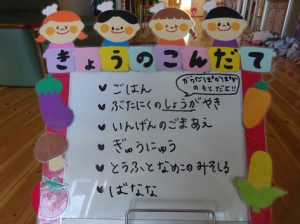 きょうのこんだて
からだぽかぽか
のもとだよ!!
ごはん
ぶたにくのしょうがやき
いんげんのごまあえ
ぎゅうにゅう
とうふとなめこのみそしる
ばなな